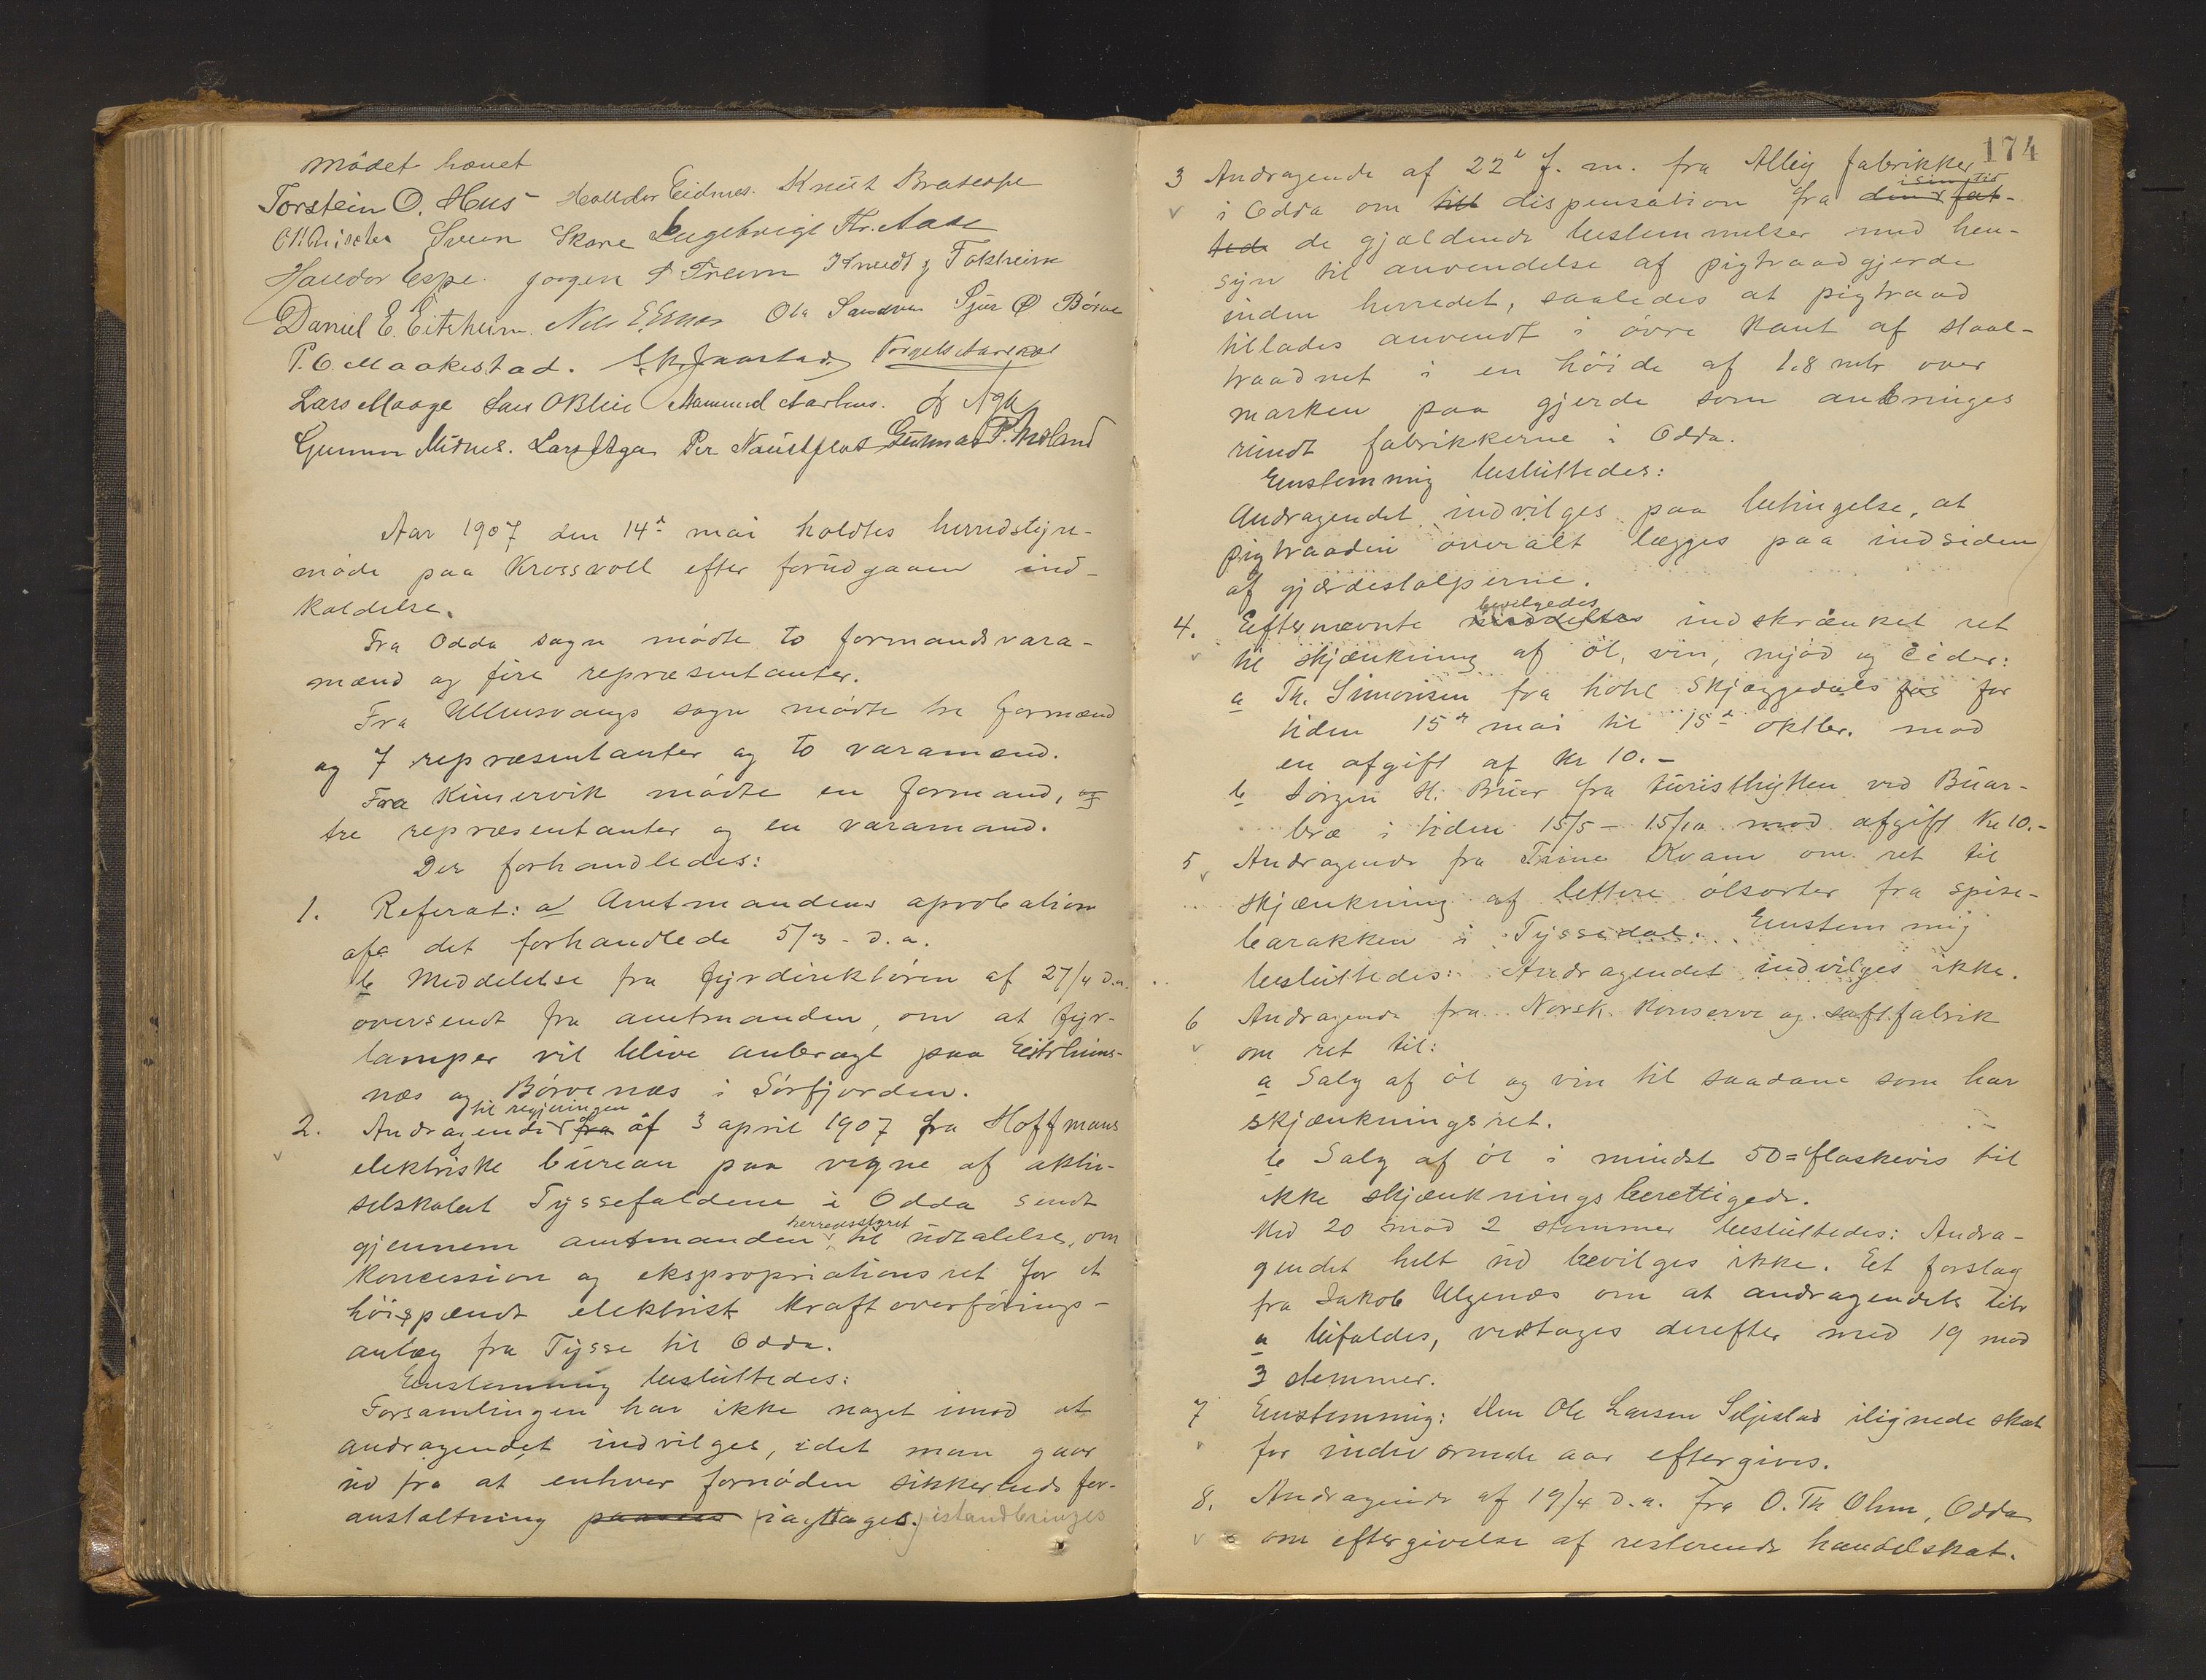 Mødet hævet
Torstein O. Hus Halldor Eidnes. Knut Bratespe
Svein Skare Ingebrigt Kr. Aase
Halldor Espe. Jørgen Knudt J Tokheim
Daniel E. Eitrheim. Nils E. Ola Sandven Sjur P Børve
P. O. Maakestad. Jaastad
Lars Maage Lars O Blie Aammund Aarhus. L Aga
Gunnar Midnes. Lars Aga Per Naustflot Gunnar P. Moland
Aar 1907 den 14de mai holdtes herredsstyre-
møde paa Krossvoll efter forudgaaen ind-
kaldelse.
Fra Odda sogn mødte to formandsvara-
mænd og fire repræsentanter.
Fra Ullensvangs sogn mødte tre formænd
og 7 repræsentanter og to varamænd.
Fra Kinservik mødte en formand, og
tre repræsentanter og en varamand.
Der forhandledes:
1. Referat: a Amtmandens aprobation
af det forhandlede 5/3 d.a.
b Meddelelse fra fyrdirektøren af 27/4 d.a.
oversendt fra amtmanden, om at fyr-
lamper vil blive anbragt paa Eitrheims-
næs og Børvenæs i Sørfjorden.
til regjeringen
2. Andragende fra af 3 april 1907 fra Hoffmans
elektriske bureau paa vegne af aktie-
selskabet Tyssefaldene i Odda sendt
herredsstyret
gjennem amtmanden til udtalelse, om
koncession og ekspropriationsret for et
høispændt elektrisk kraftoverførings-
anlæg fra Tysse til Odda.
Enstemmig besluttedes:
Forsamlingen har ikke noget imod at
andragendet indvilges, idet man gaar
ud fra at enhver fornøden sikkerheds for-
anstaltning paasees (iagttages.) istandbringes
174
3 Andragende af 22de f. m. fra Alby fabrikker
i sin tid
i Odda om till dispensation fra den fat-
tede de gjældende bestemmelser med hen-
syn til anvendelse af pigtraadgjerde
inden herredet, saaledes at pigtraad
tillades anvendt i øvre kant af staal-
traadnet i en høide af 1.8 mtr over
marken paa gjerde som anbringes
rundt fabrikkerne i Odda.
Enstemmig besluttedes:
Andragendet indvilges paa betingelse, at
pigtraaden overalt lægges paa indsiden
af gjærdestolperne.
bevilgedes
4. Efternævnte meddeltes indskrænket ret
til skjænkning af øl, vin, mjød og cider:
a Th. Simonsen fra hotel Skjæggedals fos for
tiden 15de mai til 15de oktbr. mod
en afgift af Kr 10.-
b Jørgen H. Buer fra turisthytten ved Buar-
bræ i tiden 15/5 - 15/10 mod afgift Kr 10.-
5 Andragende fra Trine Kvam om ret til
skjænkning af lettere ølsorter fra spise-
barakken i Tyssedal. Enstemmig
besluttedes: Andragendet indvilges ikke.
6 Andragende fra Norsk konserve og saftfabrik
om ret til:
a Salg af øl og vin til saadane som har
skjænkningsret.
b Salg af øl i mindst 50=flaskevis til
ikke skjænkningsberettigede.
Med 20 mod 2 stemmer besluttedes: Andra-
gendet helt ud bevilges ikke. Et forslag
fra Jakob Ulgenæs om at andragendets litr
a bifaldes, vedtages derefter med 19 mod
3 stemmer.
7 Enstemmig: Den Ole Larsen Seljestad ilignede skat
for indeværende aar eftergives.
8. Andragende af 19/4 d.a. fra O. Th Ohm, Odda
om eftergivelse af resterende handelskat.